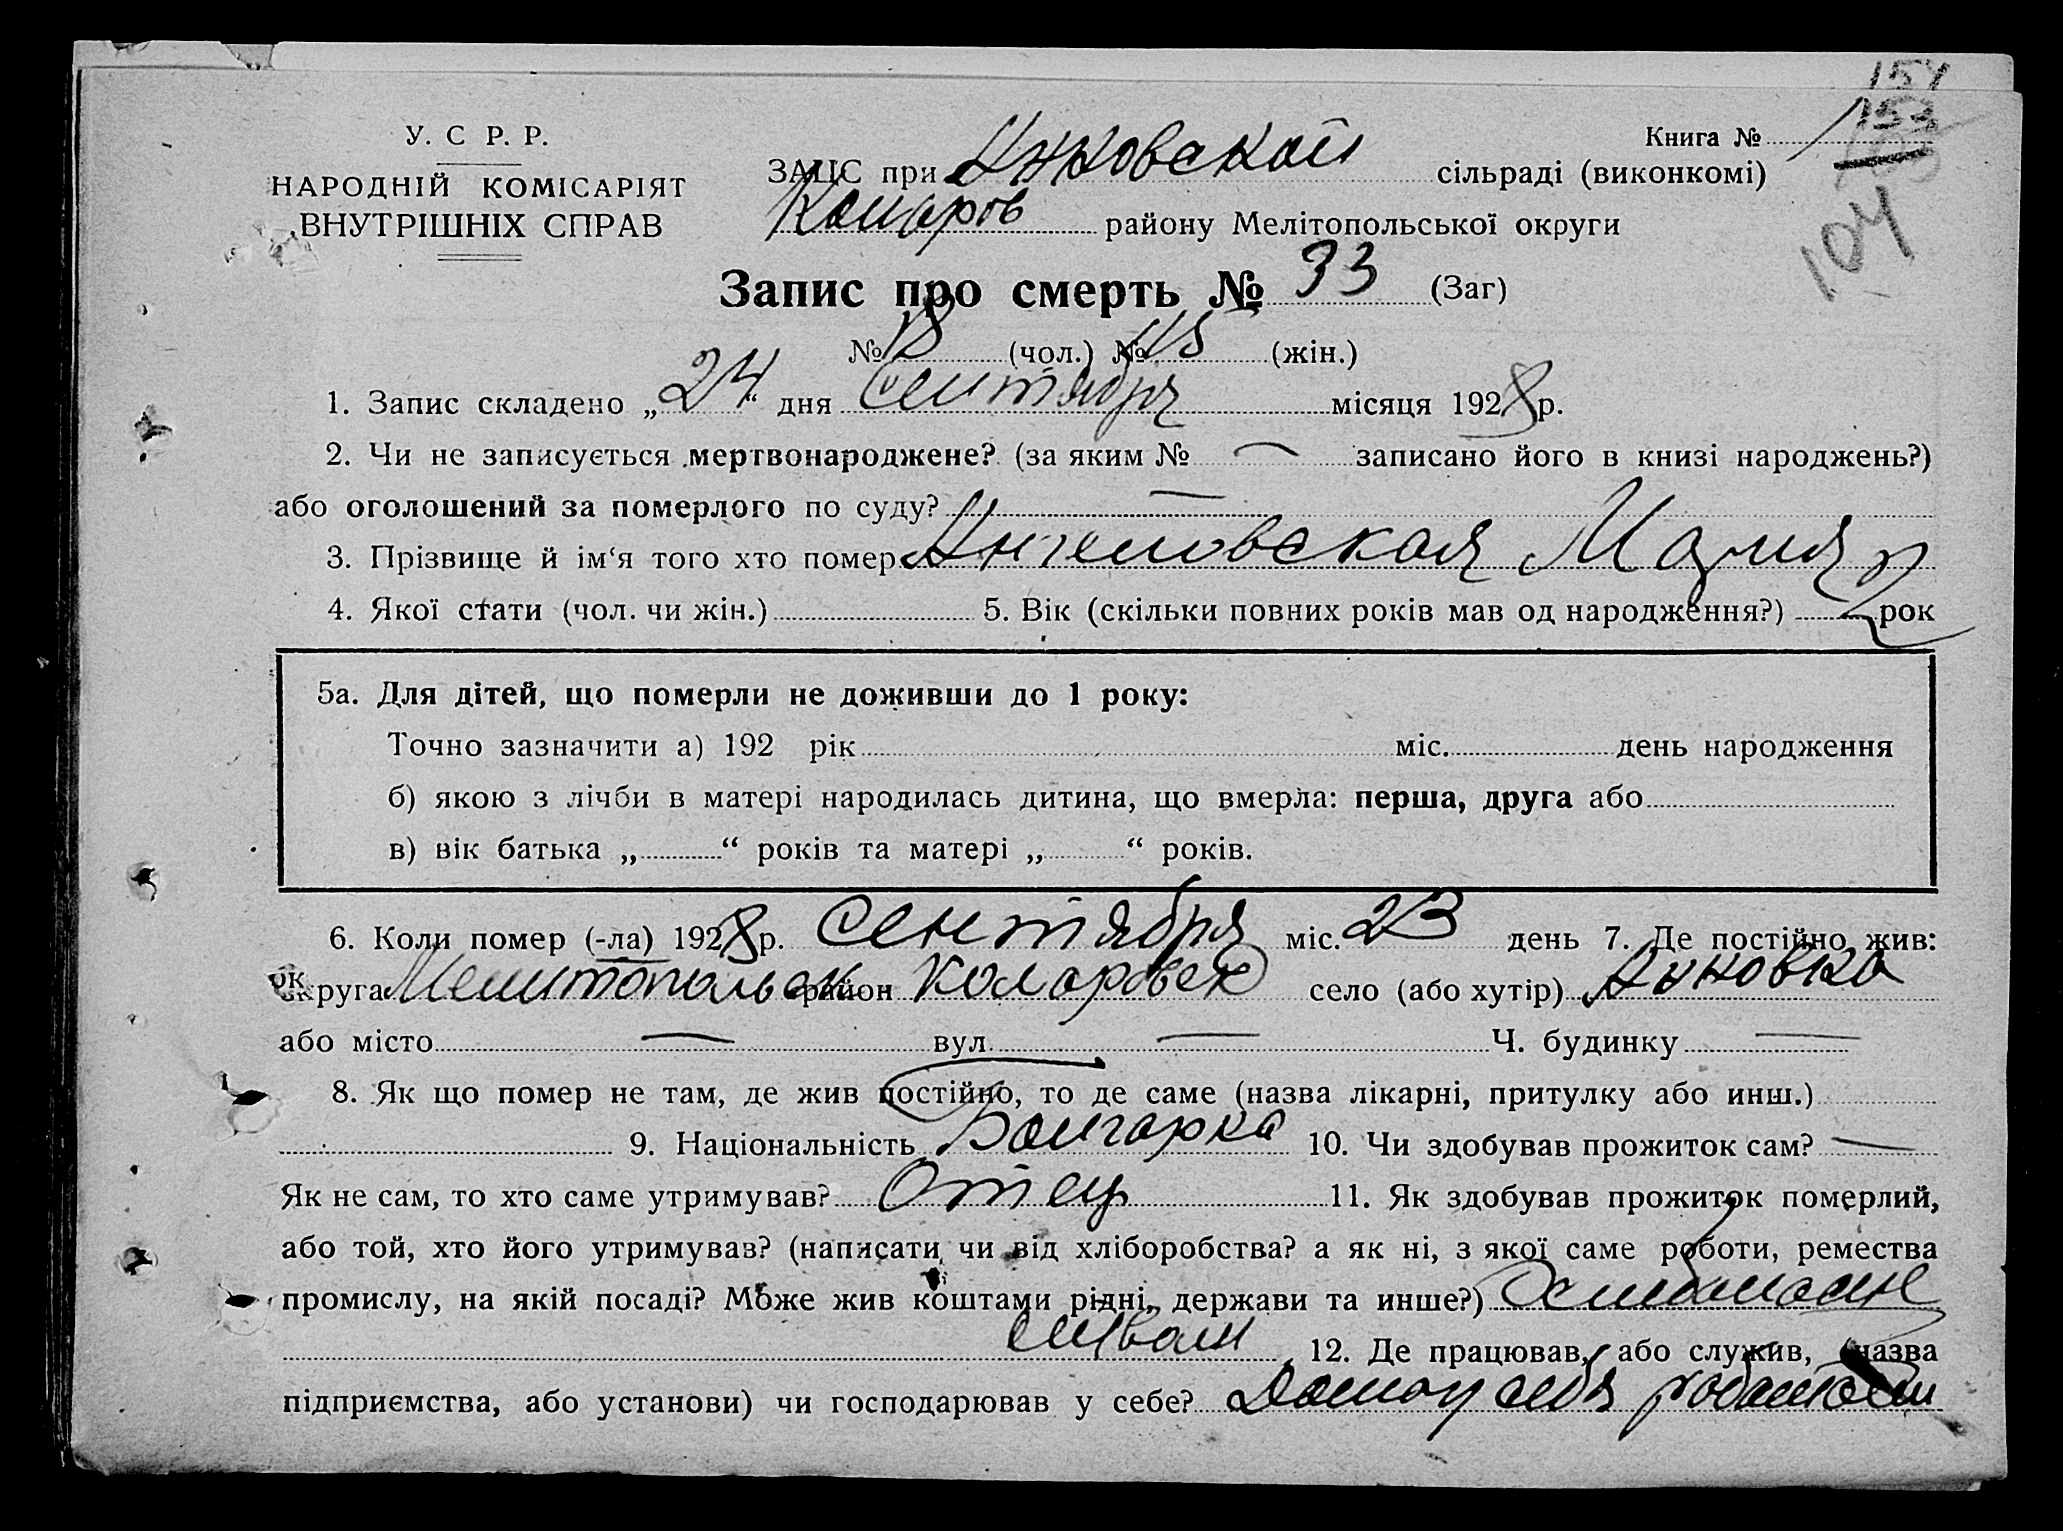 154
153
У. С. Р. Р.
Книга № 1
НАРОДНІЙ КОМІСАРІЯТ
ВНУТРІШНІХ СПРАВ
ЗАГС при сільраді (виконкомі)
району Мелітопольської округи
104
Запис про смерть № 33 (Заг)
№ 18 (чол.) № 15 (жін.)
1. Запис складено „24“ дня сентября місяця 1928 р.
2. Чи не записується мертвонароджене? (за яким № — записано його в книзі народжень?)
або оголошений за померлого по суду? —
3. Прізвище й ім‘я того хто помер Мария
4. Якої стати (чол. чи жін.) 5. Вік (скільки повних років мав од народження?) 2 рок
5а. Для дітей, що померли не доживши до 1 року:
Точно зазначити а) 192 рік міс. день народження
б) якою з лічби в матері народилась дитина, що вмерла: перша, друга або
в) вік батька „ “ років та матері „ “ років.
6. Коли помер (-ла) 1928 р. сентября міс. 23 день 7. Де постійно жив:
округа Мелитопольск район Коларовск село (або хутір)
або місто — вул. — Ч. будинку —
8. Як що помер не там, де жив постійно, то де саме (назва лікарні, притулку або инш.)
9. Національність Болгарка 10. Чи здобував прожиток сам? —
Як не сам, то хто саме утримував? Отец 11. Як здобував прожиток померлий,
або той, хто його утримував? (написати чи від хліборобства? а як ні, з якої саме роботи, ремества
промислу, на якій посаді? Може жив коштами рідні, держави та инше?)
12. Де працював, або служив, (назва
підприємства, або установи) чи господарював у себе? Дома у себя